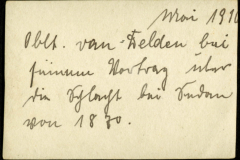 Mai 191
Oblt. van-Delden bei
seinem Vortrag über
die Schlacht bei Sedan
von 1870.